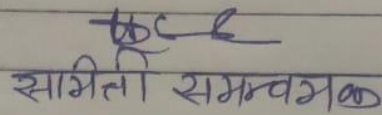 सामिती समन्वमक